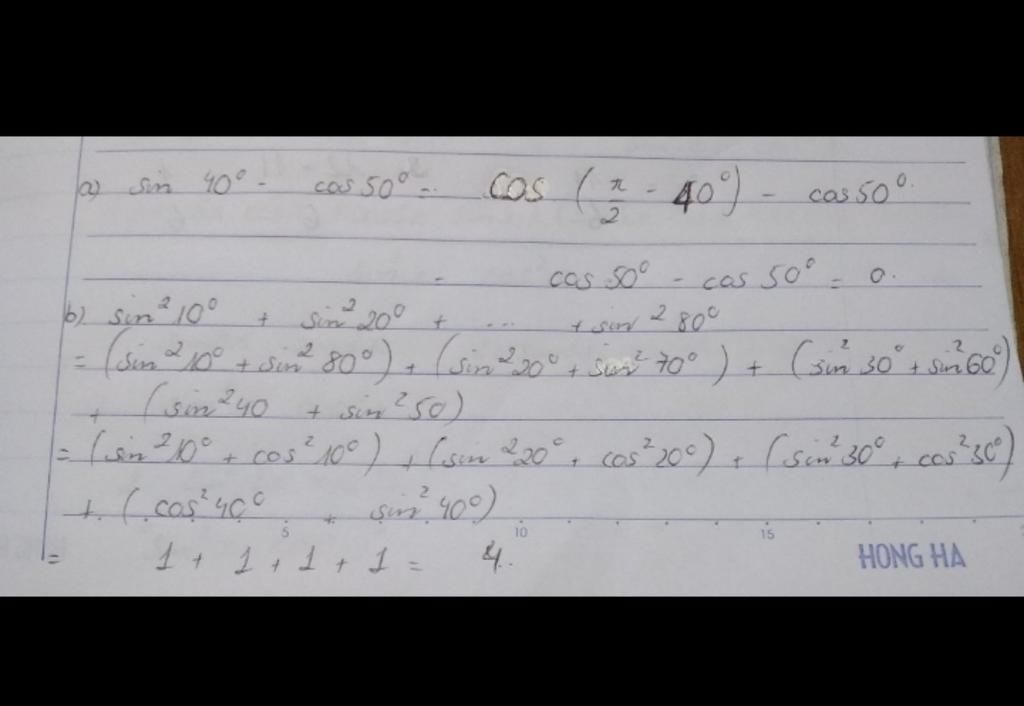 a) sin 40° - cos 50° = cos (π/2 - 40°) - cos 50°.
= cos 50° - cos 50° = 0.
b) sin² 10° + sin² 20° + ... + sin² 80°
= (sin² 10° + sin² 80°) + (sin² 20° + sin² 70°) + (sin² 30° + sin² 60°)
+ (sin² 40 + sin² 50)
= (sin² 10° + cos² 10°) + (sin² 20° + cos² 20°) + (sin² 30° + cos² 30°)
+ (cos² 40° + sin² 40°)
5 10 15
= 1 + 1 + 1 + 1 = 4.
HONG HA